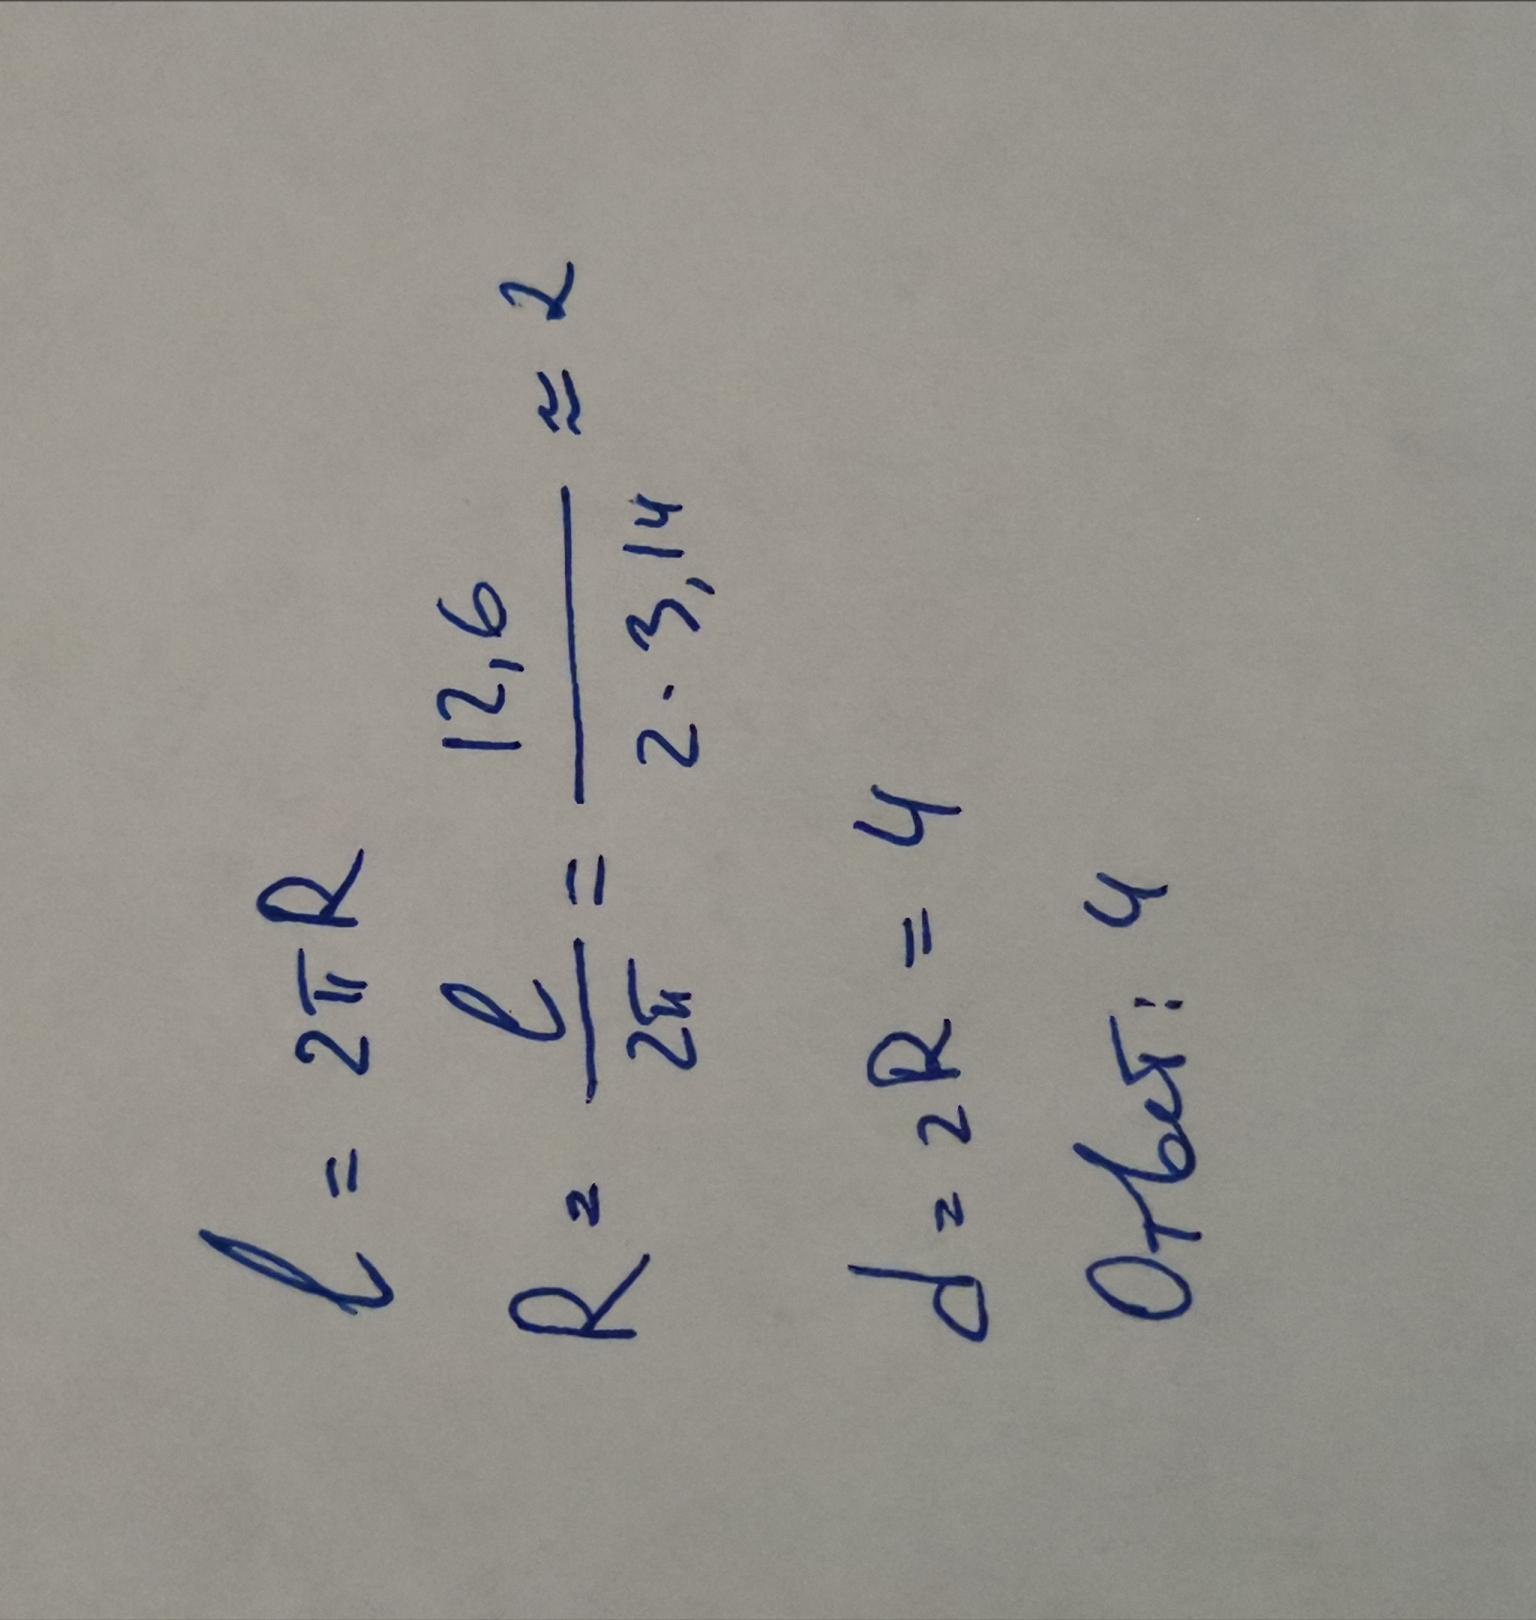 l = 2πR
R = l/2π = 12,6/2·3,14 ≈ 2
d = 2R = 4
Ответ: 4